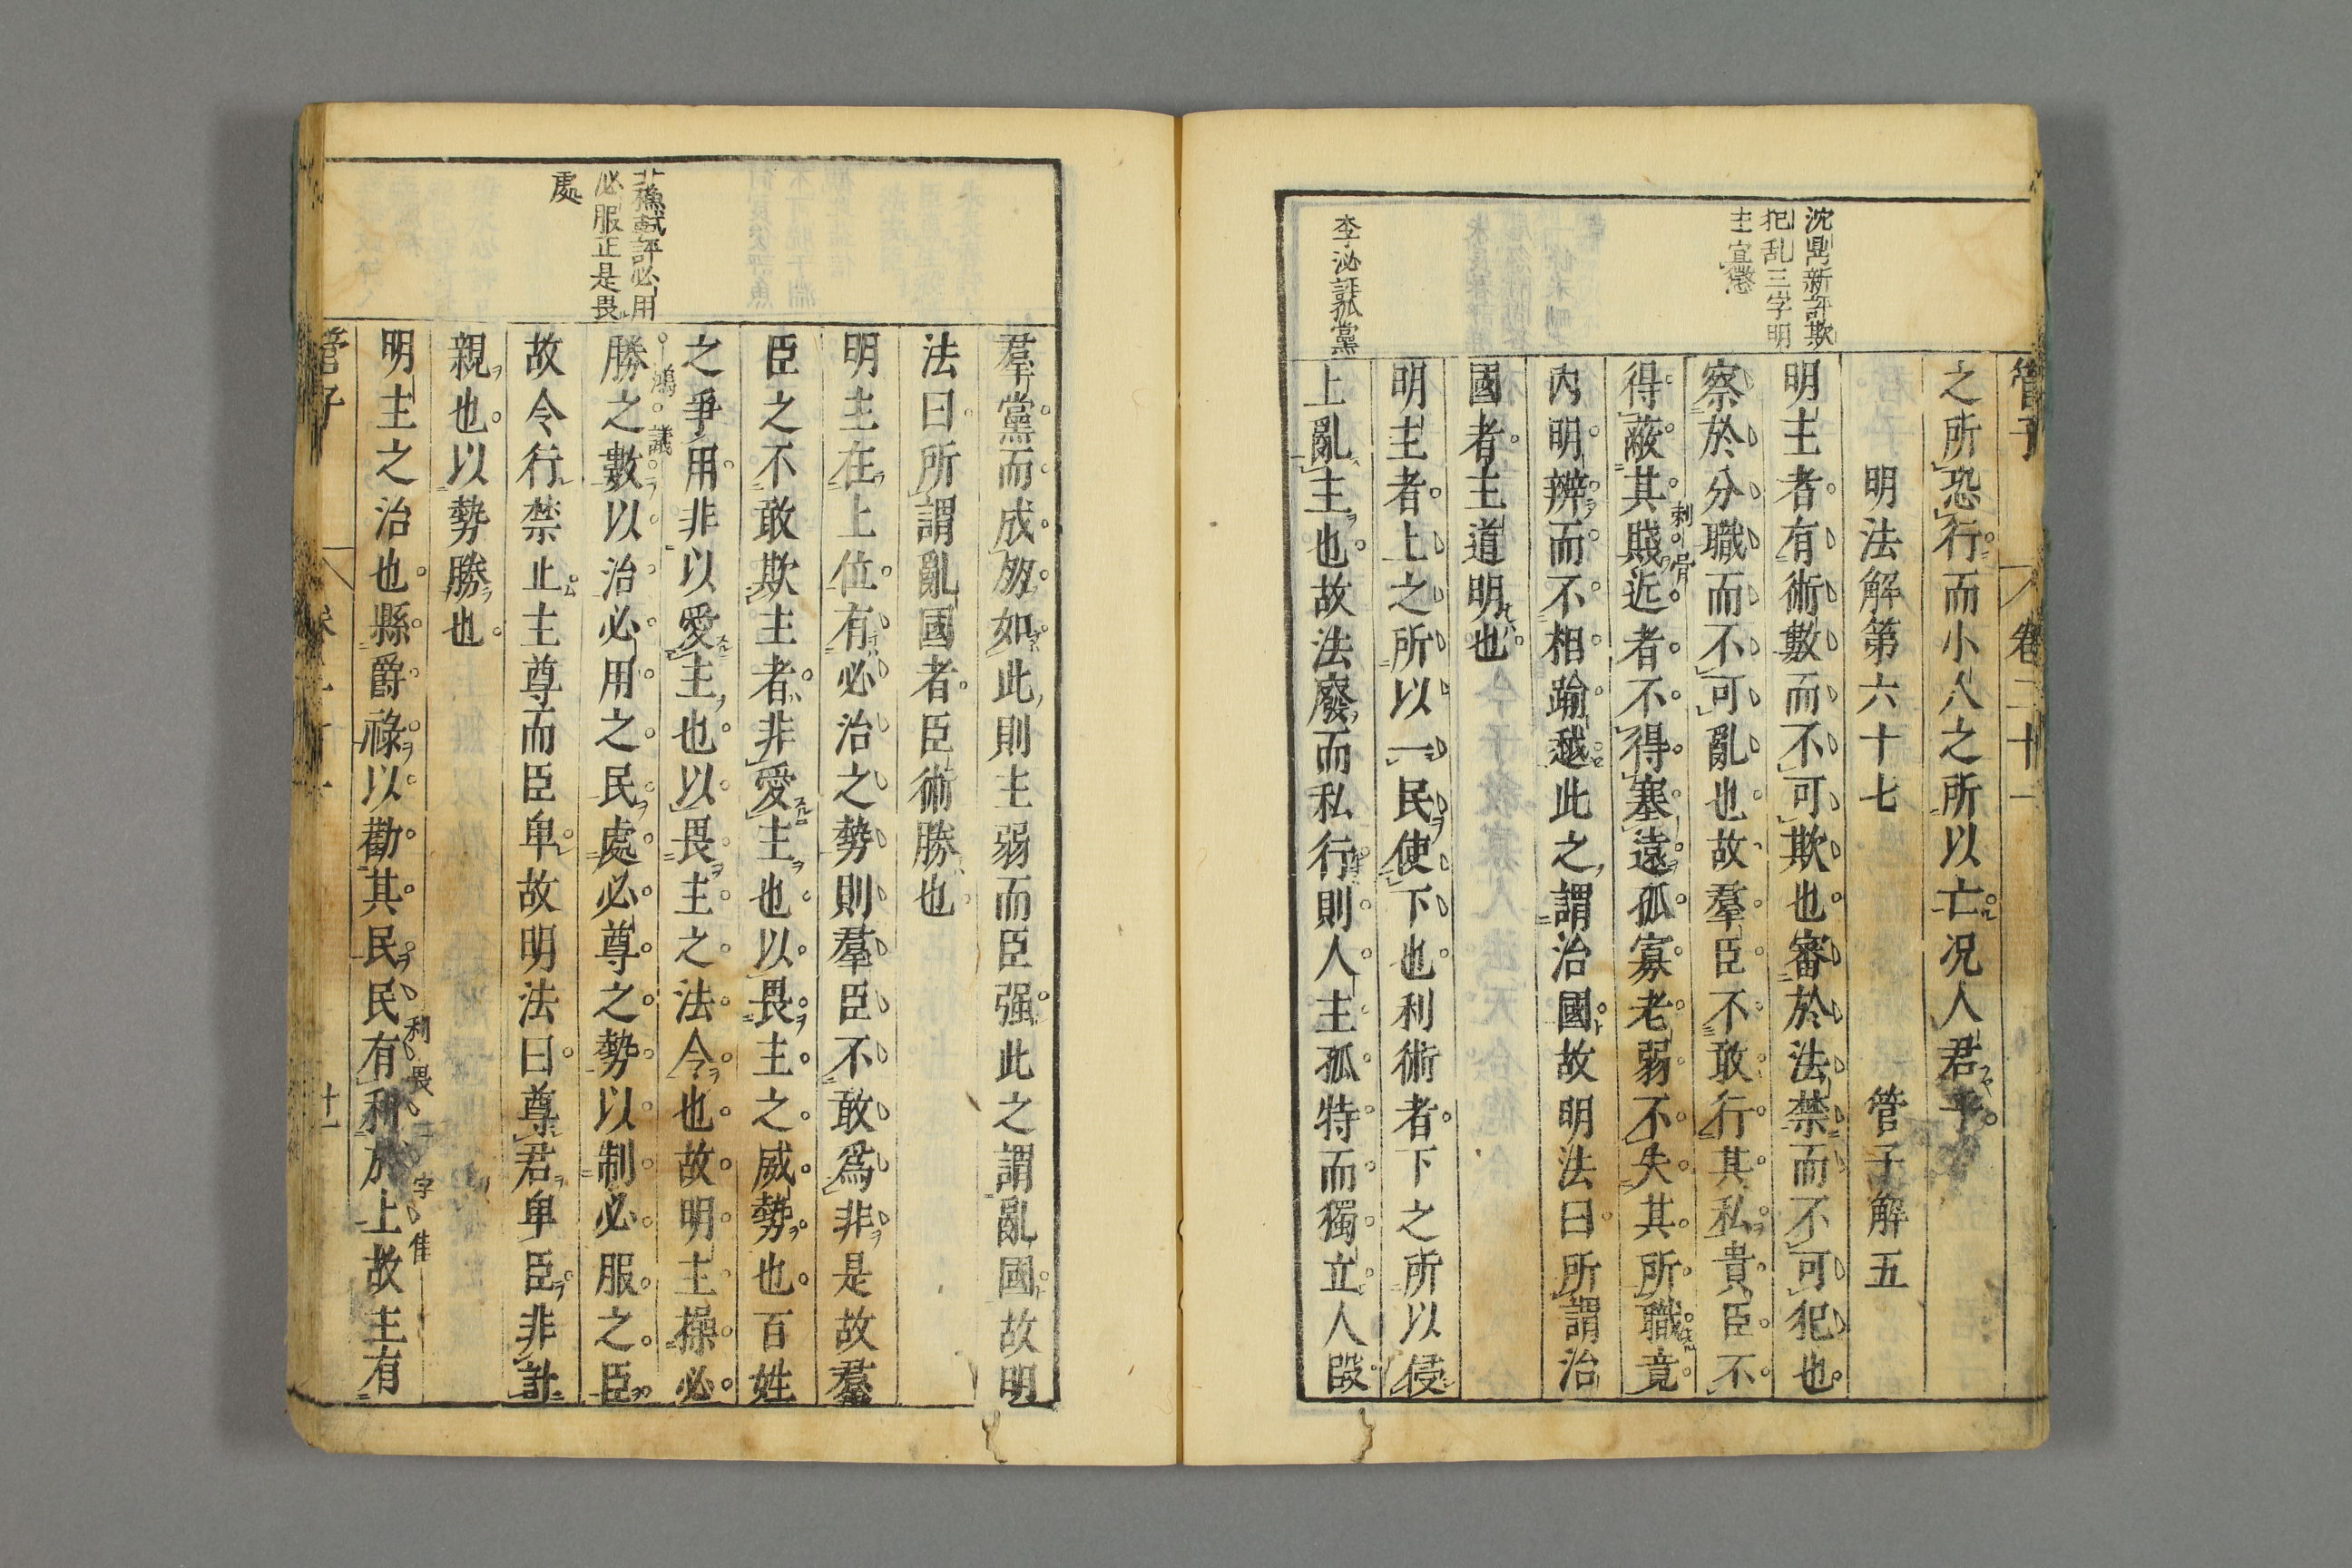 管子 卷二十一
之所恐行而小人之所以亡况人君乎
明法解第六十七 管子解五
沈鼎新評欺
犯乱三字明
主宜懲
明主者有術數而不可欺也審於法禁而不可犯也
察於分職而不可亂也故羣臣不敢行其私貴臣不
得蔽其賤近者不得塞遠孤寡老弱不失其所職竟
刺骨
内明辨而不相踰越此之謂治國故明法曰所謂治
國者主道明也
明主者上之所以一民使下也利術者下之所以侵
李泌評孤黨
上亂主也故法廢而私行則人主孤特而獨立人臣
羣黨而成朋如此則主弱而臣强此之謂亂國故明
法曰所謂亂國者臣術勝也
明主在上位有必治之勢則羣臣不敢爲非是故羣
臣之不敢欺主者非愛主也以畏主之威勢也百姓
之爭用非以愛主也以畏主之法令也故明主操必
蘇軾評必用
必服正是畏
處
鴻議
勝之數以治必用之民處必尊之勢以制必服之臣
故令行禁止主尊而臣卑故明法曰尊君卑臣非計
親也以勢勝也
利畏二字佳
明主之治也縣爵祿以勸其民民有利於上故主有
管子